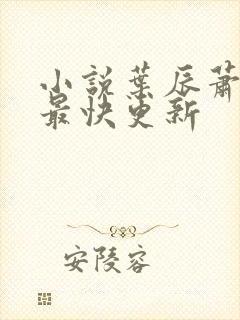 小说叶辰萧
最快更新
安陵容